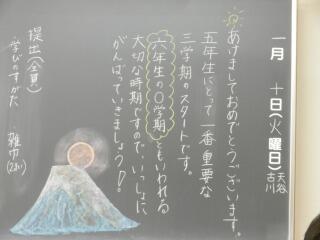 一月 十日(火曜日)
天谷
古川
あけましておめでとうございます。
五年生にとって一番重要な
三学期のスタートです。
六年生の〇学期ともいわれる
大切な時期ですので、いっしょに
がんばっていきましょう!
提出(全員)
学びのすがた
雑巾(2まい)